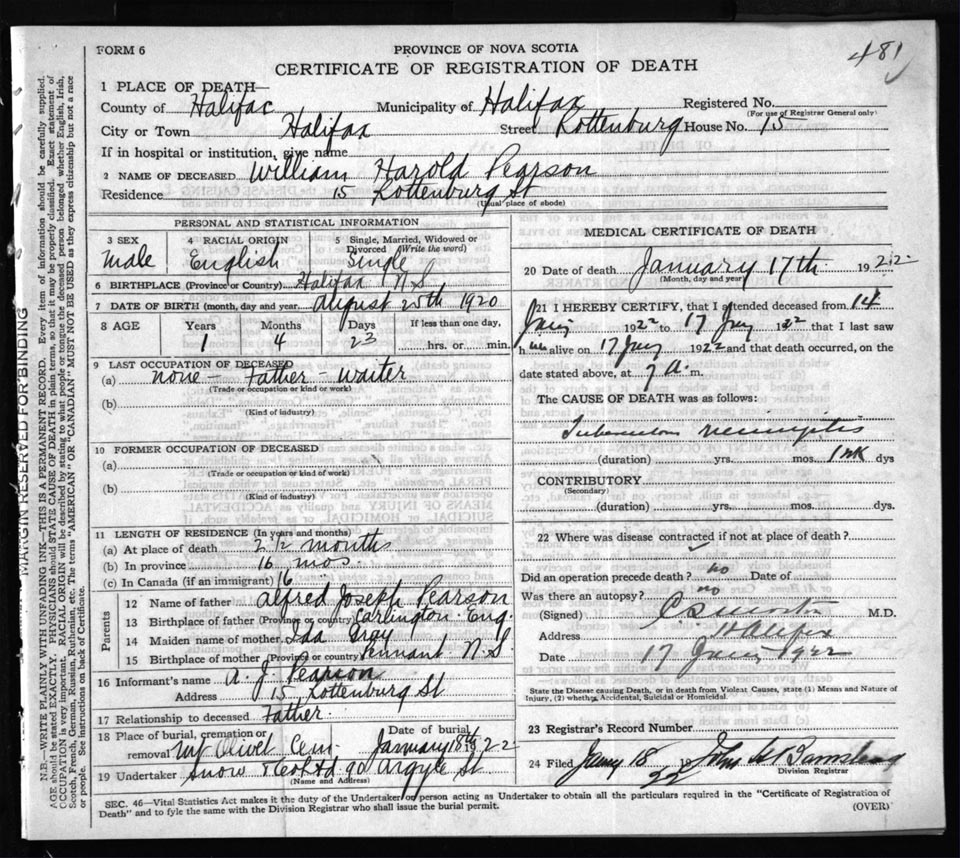 FORM 6
PROVINCE OF NOVA SCOTIA
CERTIFICATE OF REGISTRATION OF DEATH
481
1 PLACE OF DEATH—
County of Halifax Municipality of Halifax Registered No.
(For use of Registrar General only)
City or Town Halifax Street Rottenburg House No. 15
If in hospital or institution, give name
2 NAME OF DECEASED William Harold Pearson
Residence 15 Rottenburg St
(Usual place of abode)
PERSONAL AND STATISTICAL INFORMATION
3 SEX 4 RACIAL ORIGIN 5 Single, Married, Widowed or Divorced (Write the word)
male English Single
6 BIRTHPLACE (Province or Country) Halifax N.S
7 DATE OF BIRTH (month, day and year August 25th 1920
8 AGE Years Months Days If less than one day,
1 4 23 hrs. or min.
9 LAST OCCUPATION OF DECEASED
(a) none — Father — Waiter
(Trade or occupation or kind or work)
(b)
(Kind of industry)
10 FORMER OCCUPATION OF DECEASED
(a)
(Trade or occupation or kind of work)
(b)
(Kind of industry)
11 LENGTH OF RESIDENCE (In years and months)
(a) At place of death 2 1/2 months
(b) In province 16 mos.
(c) In Canada (if an immigrant) 16
Parents
12 Name of father Alfred Joseph Pearson
13 Birthplace of father (Province or country) Earlington Eng.
14 Maiden name of mother Ida Gray
15 Birthplace of mother (Province or country) Pennant N.S
16 Informant's name A. J. Pearson
Address 15 Rottenburg St
17 Relationship to deceased Father
18 Place of burial, cremation or removal Mt Olivet Cem. Date of burial January 18th 1922
19 Undertaker Snow & Co Ltd 90 Argyle St
(Name and Address)
MEDICAL CERTIFICATE OF DEATH
20 Date of death January 17th 1922
(Month, day and year)
21 I HEREBY CERTIFY, that I attended deceased from 14
Jany 1922 to 17 Jany 1922 that I last saw
him alive on 17 Jany 1922 and that death occurred, on the
date stated above, at 7 A. m.
The CAUSE OF DEATH was as follows:
Tuberculous meningitis
(duration) yrs. mos. 1 wk dys
CONTRIBUTORY
(Secondary)
(duration) yrs. mos. dys.
22 Where was disease contracted if not at place of death?
Did an operation precede death? no Date of
Was there an autopsy? no
(Signed) M.D.
Address Halifax
Date 17 Jany 1922
State the Disease causing Death, or in death from Violent Causes, state (1) Means and Nature of Injury, (2) whether Accidental, Suicidal or Homicidal.
23 Registrar's Record Number
24 Filed Jany 18 1922 John
Division Registrar
SEC. 46—Vital Statistics Act makes it the duty of the Undertaker or person acting as Undertaker to obtain all the particulars required in the "Certificate of Registration of
Death" and to fyle the same with the Division Registrar who shall issue the burial permit.
(OVER)
MARGIN RESERVED FOR BINDING
N.B.—WRITE PLAINLY WITH UNFADING INK—THIS IS A PERMANENT RECORD. Every item of information should be carefully supplied.
AGE should be stated EXACTLY. PHYSICIANS should STATE CAUSE OF DEATH in plain terms, so that it may be properly classified. Exact statement of
OCCUPATION is very important. RACIAL ORIGIN will be described by stating to what people or tongue the deceased person belonged whether English, Irish,
Scotch, French, German, Russian, Ruthenian, etc. The terms "AMERICAN" or "CANADIAN" MUST NOT BE USED as they express citizenship but not a race
or people. See instructions on back of Certificate.